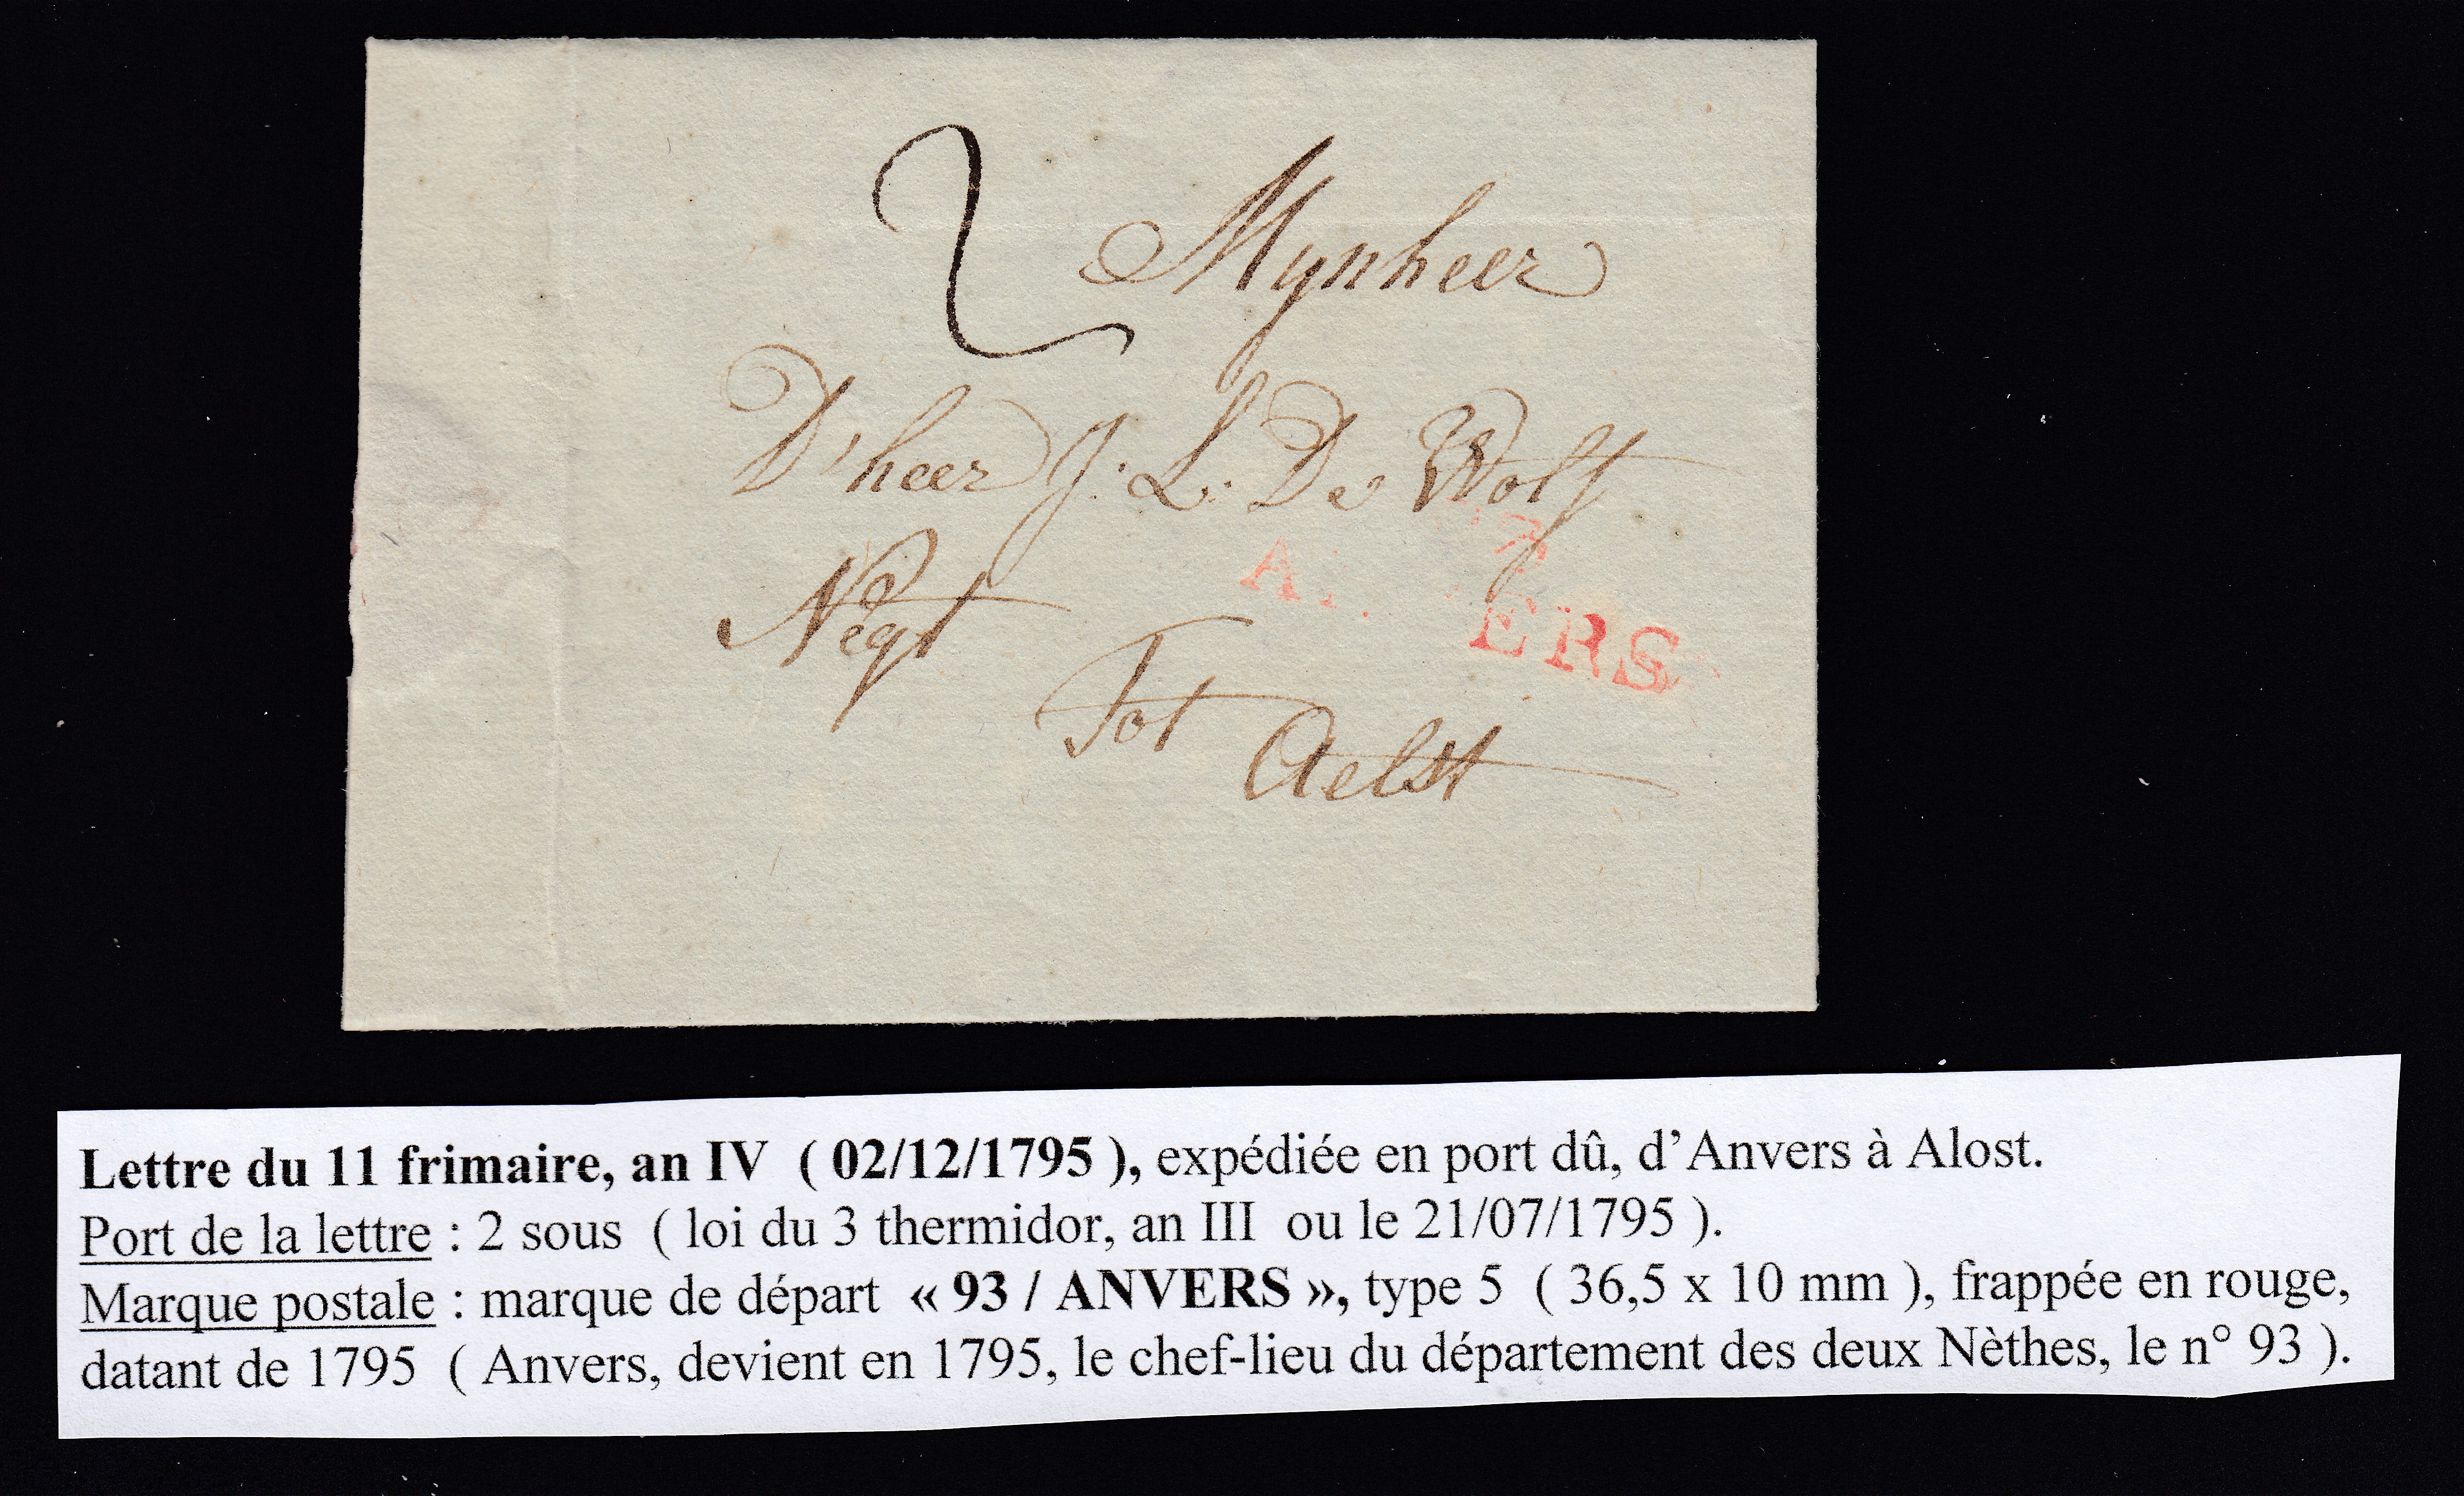 2
Mynheer
D'heer J: L: De Wolf
Negt
93
A ERS
Tot
Aelst
Lettre du 11 frimaire, an IV ( 02/12/1795 ), expédiée en port dû, d’Anvers à Alost.
Port de la lettre : 2 sous ( loi du 3 thermidor, an III ou le 21/07/1795 ).
Marque postale : marque de départ « 93 / ANVERS », type 5 ( 36,5 x 10 mm ), frappée en rouge,
datant de 1795 ( Anvers, devient en 1795, le chef-lieu du département des deux Nèthes, le n° 93 ).